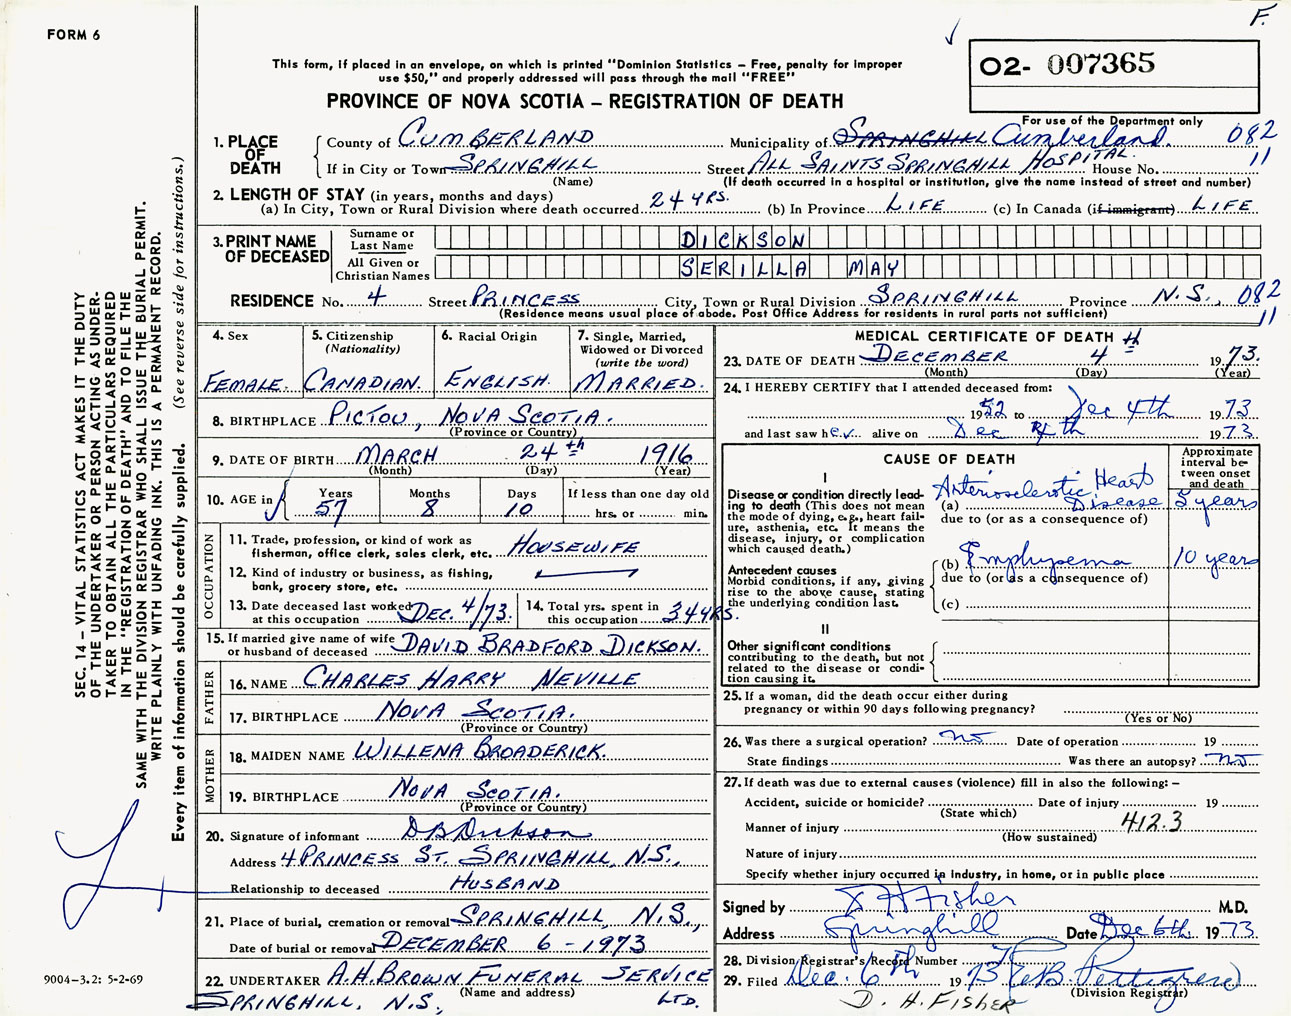 F.
FORM 6
This form, if placed in an envelope, on which is printed "Dominion Statistics – Free, penalty for improper
use $50," and properly addressed will pass through the mail "FREE"
O2- 007365
PROVINCE OF NOVA SCOTIA – REGISTRATION OF DEATH
For use of the Department only
1. PLACE OF DEATH County of CUMBERLAND Municipality of SPRINGHILL Cumberland. 082
If in City or Town SPRINGHILL Street ALL SAINTS SPRINGHILL HOSPITAL. House No. 11
(Name) (If death occurred in a hospital or institution, give the name instead of street and number)
2. LENGTH OF STAY (in years, months and days)
(a) In City, Town or Rural Division where death occurred 24 YRS. (b) In Province LIFE (c) In Canada (if immigrant) LIFE
3. PRINT NAME OF DECEASED
Surname or Last Name DICKSON
All Given or Christian Names SERILLA MAY
RESIDENCE No. 4 Street PRINCESS City, Town or Rural Division SPRINGHILL Province N.S., 082
(Residence means usual place of abode. Post Office Address for residents in rural parts not sufficient) 11
4. Sex
FEMALE.
5. Citizenship
(Nationality)
CANADIAN.
6. Racial Origin
ENGLISH.
7. Single, Married,
Widowed or Divorced
(write the word)
MARRIED.
8. BIRTHPLACE PICTOU, NOVA SCOTIA.
(Province or Country)
9. DATE OF BIRTH MARCH 24th 1916
(Month) (Day) (Year)
10. AGE in Years Months Days If less than one day old
57 8 10 hrs. or min.
OCCUPATION
11. Trade, profession, or kind of work as
fisherman, office clerk, sales clerk, etc. HOUSEWIFE
12. Kind of industry or business, as fishing,
bank, grocery store, etc.
13. Date deceased last worked
at this occupation DEC. 4/73.
14. Total yrs. spent in
this occupation 34 YRS.
15. If married give name of wife
or husband of deceased DAVID BRADFORD DICKSON.
FATHER
16. NAME CHARLES HARRY NEVILLE
17. BIRTHPLACE NOVA SCOTIA.
(Province or Country)
MOTHER
18. MAIDEN NAME WILLENA BROADERICK.
19. BIRTHPLACE NOVA SCOTIA.
(Province or Country)
20. Signature of informant D B Dickson
Address 4 PRINCESS ST. SPRINGHILL, N.S.,
Relationship to deceased HUSBAND
21. Place of burial, cremation or removal SPRINGHILL, N.S.,
Date of burial or removal DECEMBER 6 - 1973
22. UNDERTAKER A.H. BROWN FUNERAL SERVICE
(Name and address)
SPRINGHILL, N.S., LTD.
MEDICAL CERTIFICATE OF DEATH
23. DATE OF DEATH DECEMBER 4th 1973.
(Month) (Day) (Year)
24. I HEREBY CERTIFY that I attended deceased from:
1952 to Dec 4th 1973
and last saw her alive on Dec 4th 1973
CAUSE OF DEATH
Approximate
interval be-
tween onset
and death
I
Disease or condition directly lead-
ing to death (This does not mean
the mode of dying, e.g., heart fail-
ure, asthenia, etc. It means the
disease, injury, or complication
which caused death.)
Arteriosclerotic Heart
(a) Disease 5 years
due to (or as a consequence of)
(b) Emphysema 10 years
due to (or as a consequence of)
Antecedent causes
Morbid conditions, if any, giving
rise to the above cause, stating
the underlying condition last.
(c)
II
Other significant conditions
contributing to the death, but not
related to the disease or condi-
tion causing it.
25. If a woman, did the death occur either during
pregnancy or within 90 days following pregnancy?
(Yes or No)
26. Was there a surgical operation? no Date of operation 19
State findings Was there an autopsy? no
27. If death was due to external causes (violence) fill in also the following: –
Accident, suicide or homicide? Date of injury 19
(State which)
Manner of injury 412.3
(How sustained)
Nature of injury
Specify whether injury occurred in industry, in home, or in public place
Signed by D H Fisher M.D.
Address Springhill Date Dec 6th 1973
28. Division Registrar's Record Number
29. Filed Dec. 6th 1973
(Division Registrar)
D. H. FISHER
SEC. 14 – VITAL STATISTICS ACT MAKES IT THE DUTY
OF THE UNDERTAKER OR PERSON ACTING AS UNDER-
TAKER TO OBTAIN ALL THE PARTICULARS REQUIRED
IN THE "REGISTRATION OF DEATH" AND TO FILE THE
SAME WITH THE DIVISION REGISTRAR WHO SHALL ISSUE THE BURIAL PERMIT.
WRITE PLAINLY WITH UNFADING INK. THIS IS A PERMANENT RECORD.
Every item of information should be carefully supplied. (See reverse side for instructions.)
9004-3.2: 5-2-69